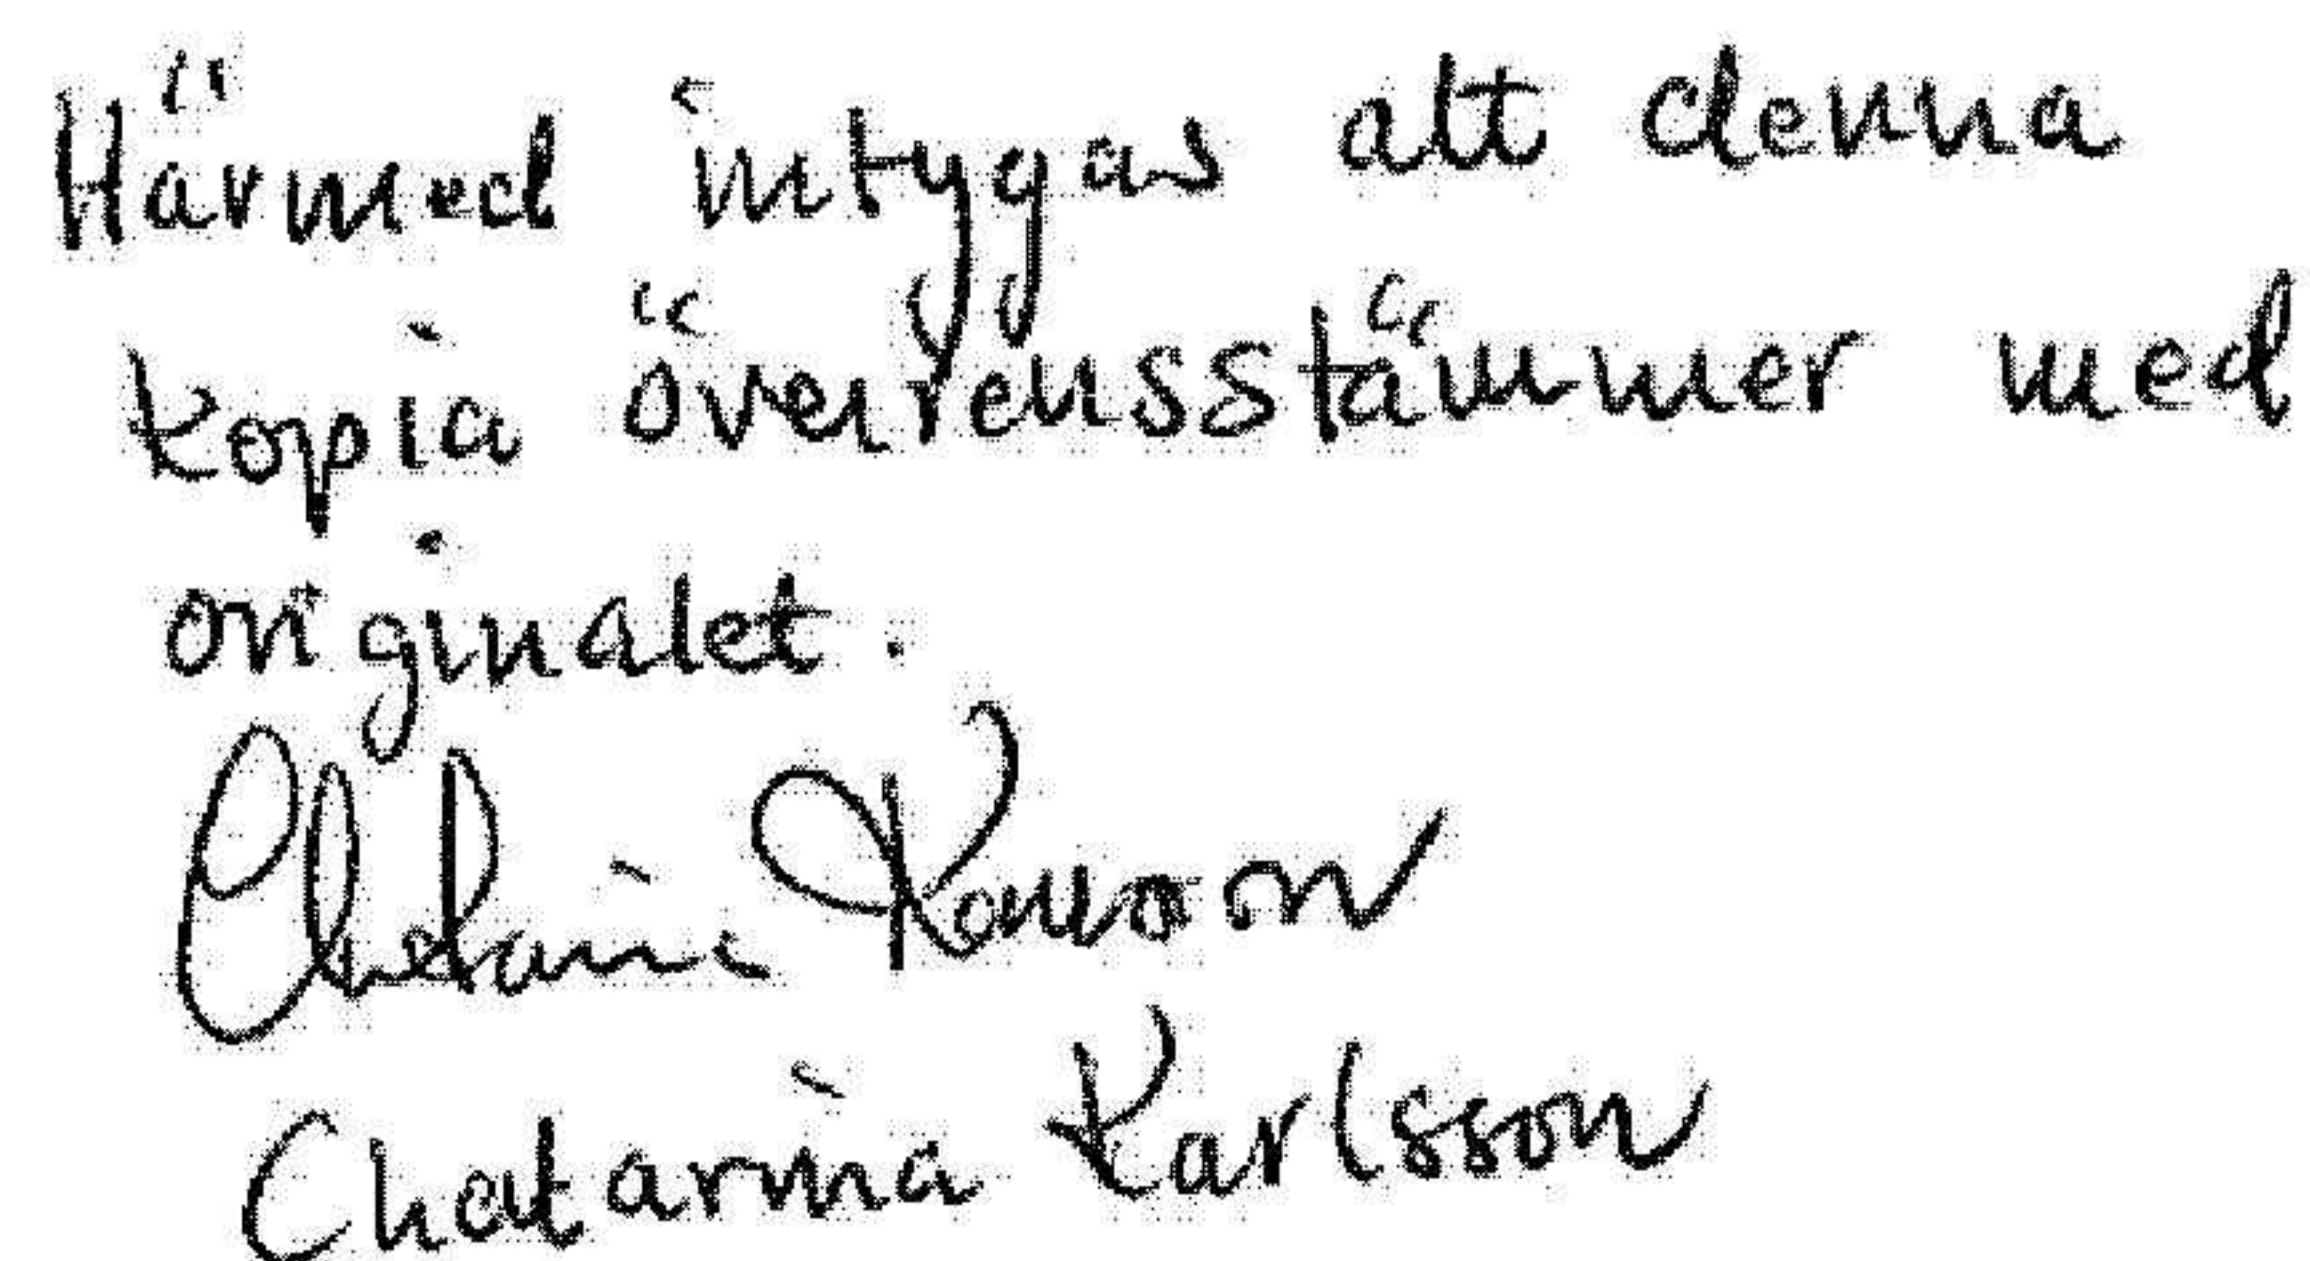 Härmed intygas att denna
kopia överrensstämmer med
originalet.
Chatarina Karlsson
Chatarina Karlsson